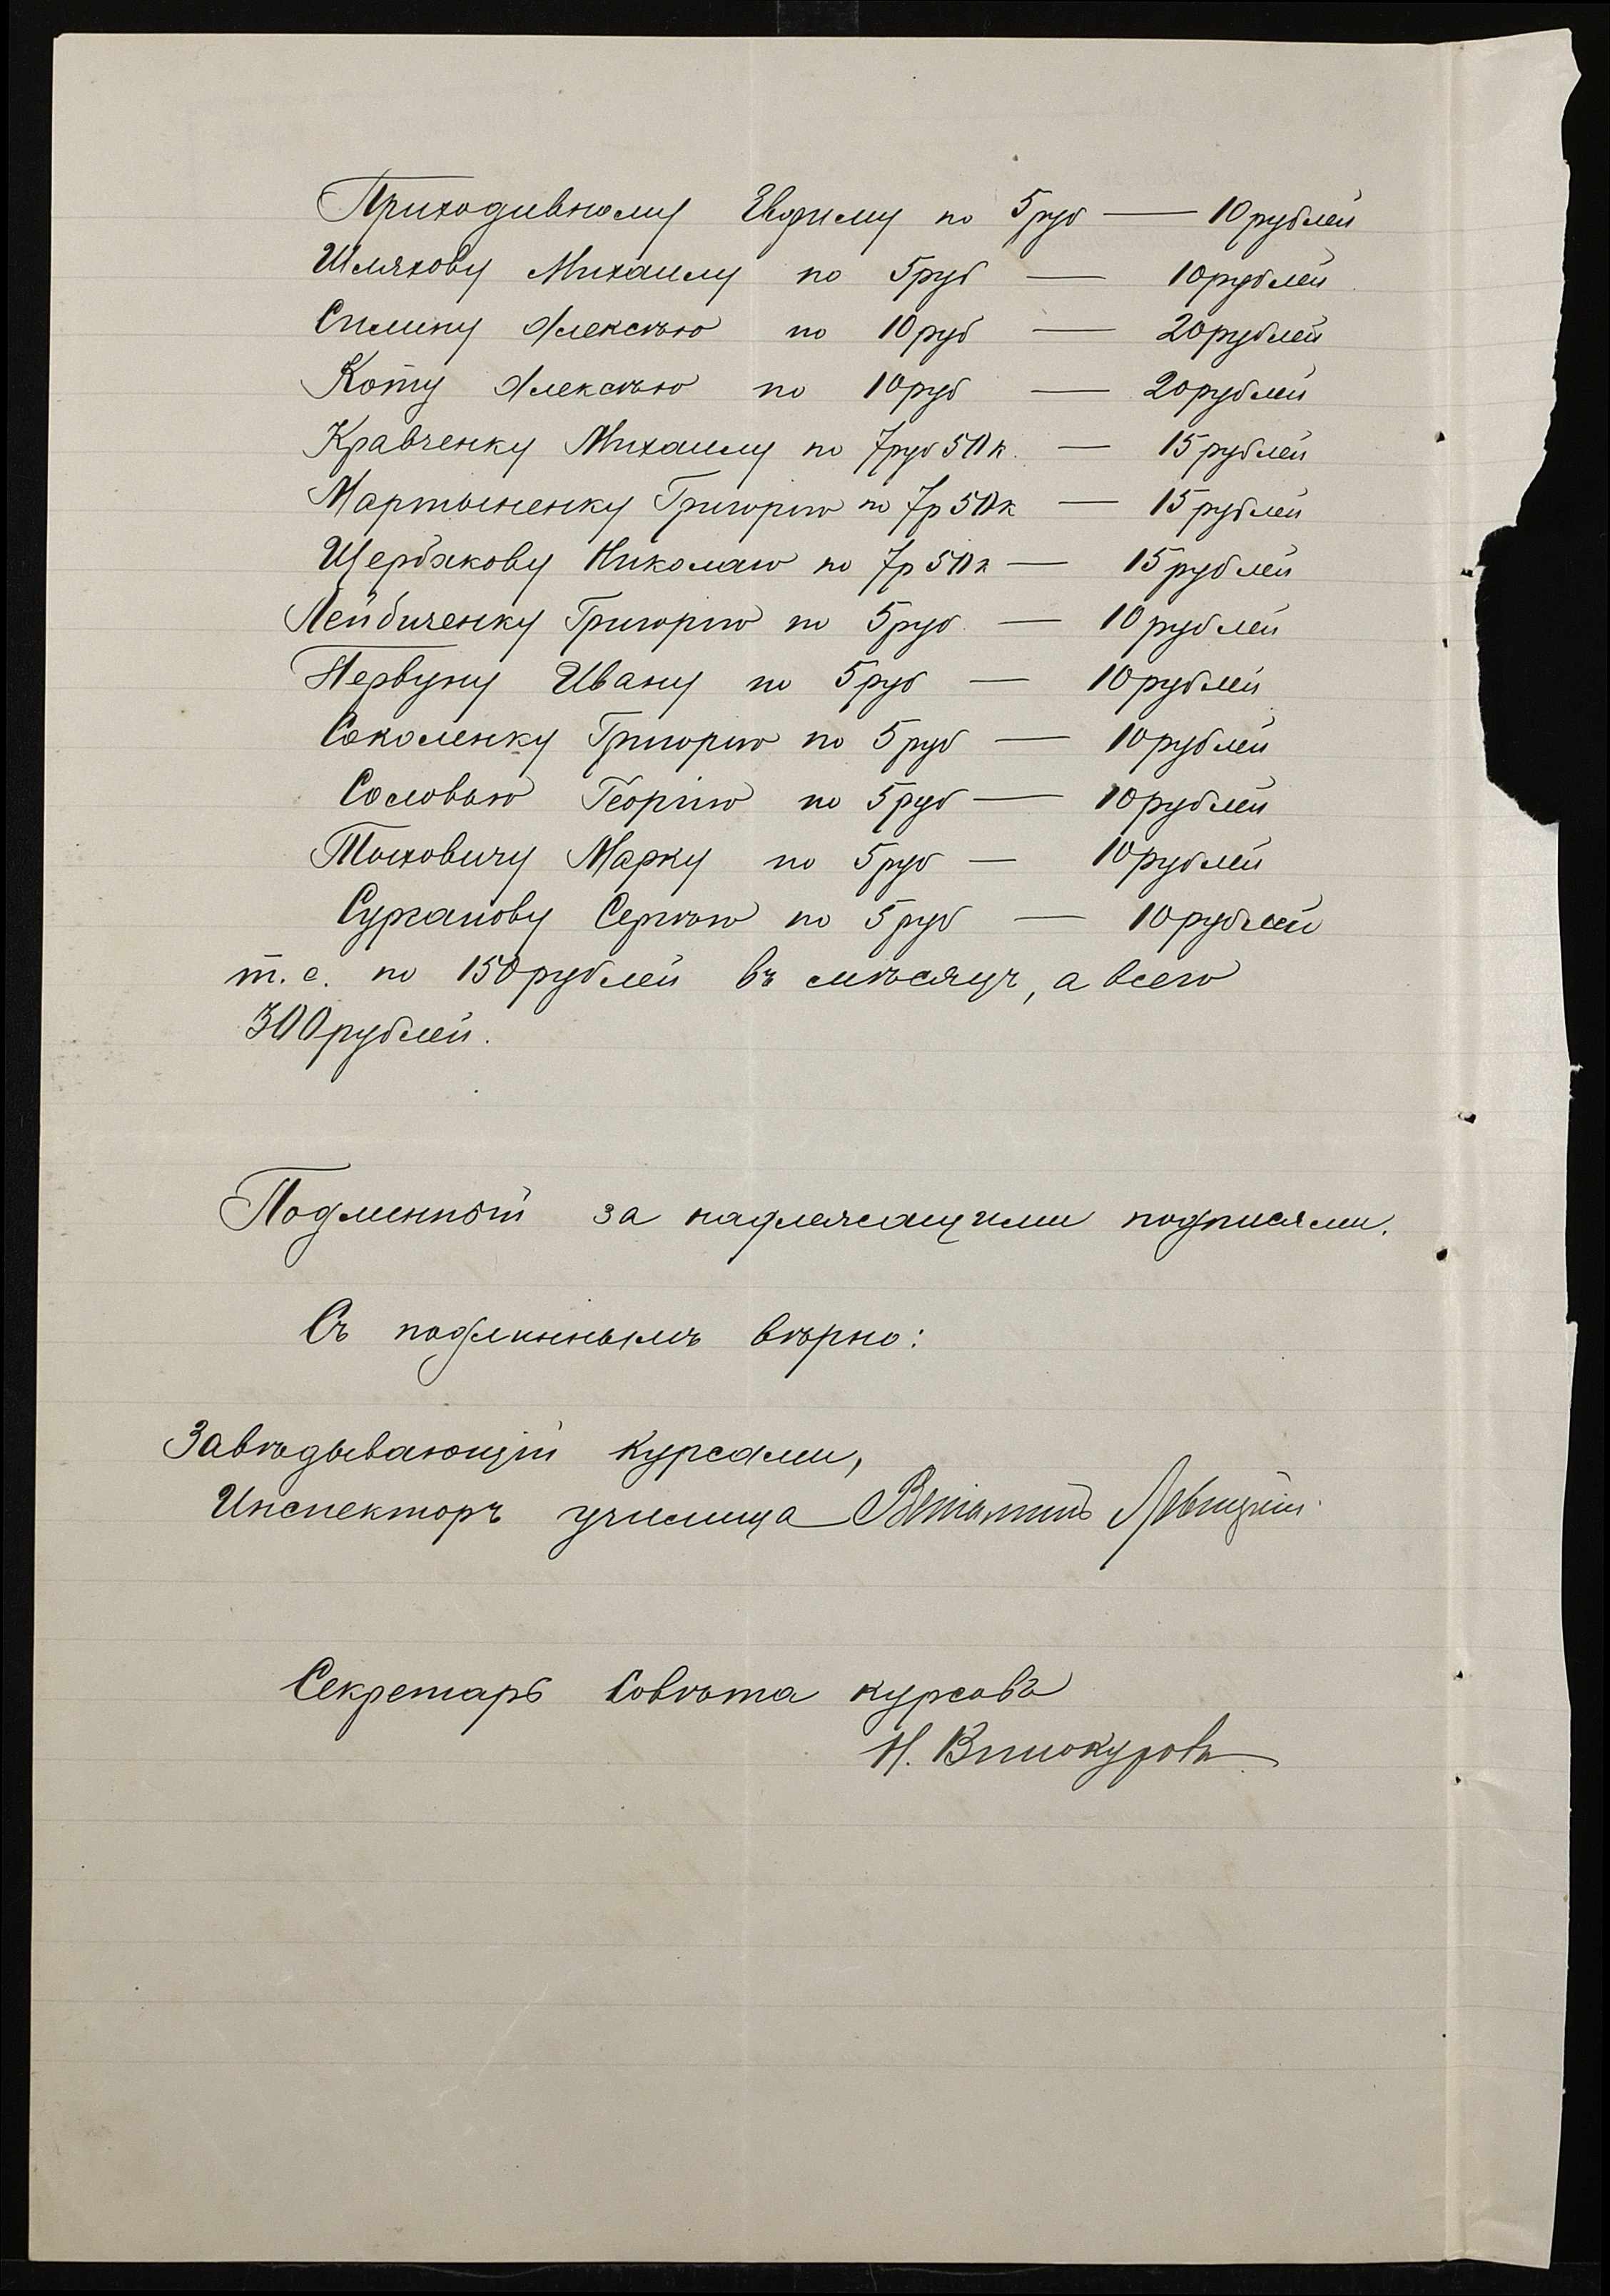 Приходивному Евфиму по 5 руб — 10 рублей
Шляхову Михаилу по 5 руб — 10 рублей
Силину Алексѣю по 10 руб — 20 рублей
Коту Алексѣю по 10 руб — 20 рублей
Кравченку Михаилу по 7 руб 50 к. — 15 рублей
Мартыненку Григорію по 7 р 50 к — 15 рублей
Щербакову Николаю по 7 р 50 к — 15 рублей
Лейбиченку Григорію по 5 руб. — 10 рублей
Первуну Ивану по 5 руб — 10 рублей
Соколенку Григорію по 5 руб — 10 рублей
Соловью Георгію по 5 руб — 10 рублей
Тыховичу Марку по 5 руб — 10 рублей
Сурганову Сергѣю по 5 руб — 10 рублей
т. е. по 150 рублей въ мѣсяцъ, а всего
300 рублей.
Подлинный за надлежащими подписями.
Съ подлиннымъ вѣрно:
Завѣдывающій курсами,
Инспекторъ училища Веніаминъ Левицкій
Секретарь Совѣта курсовъ
Н. Винокуровъ